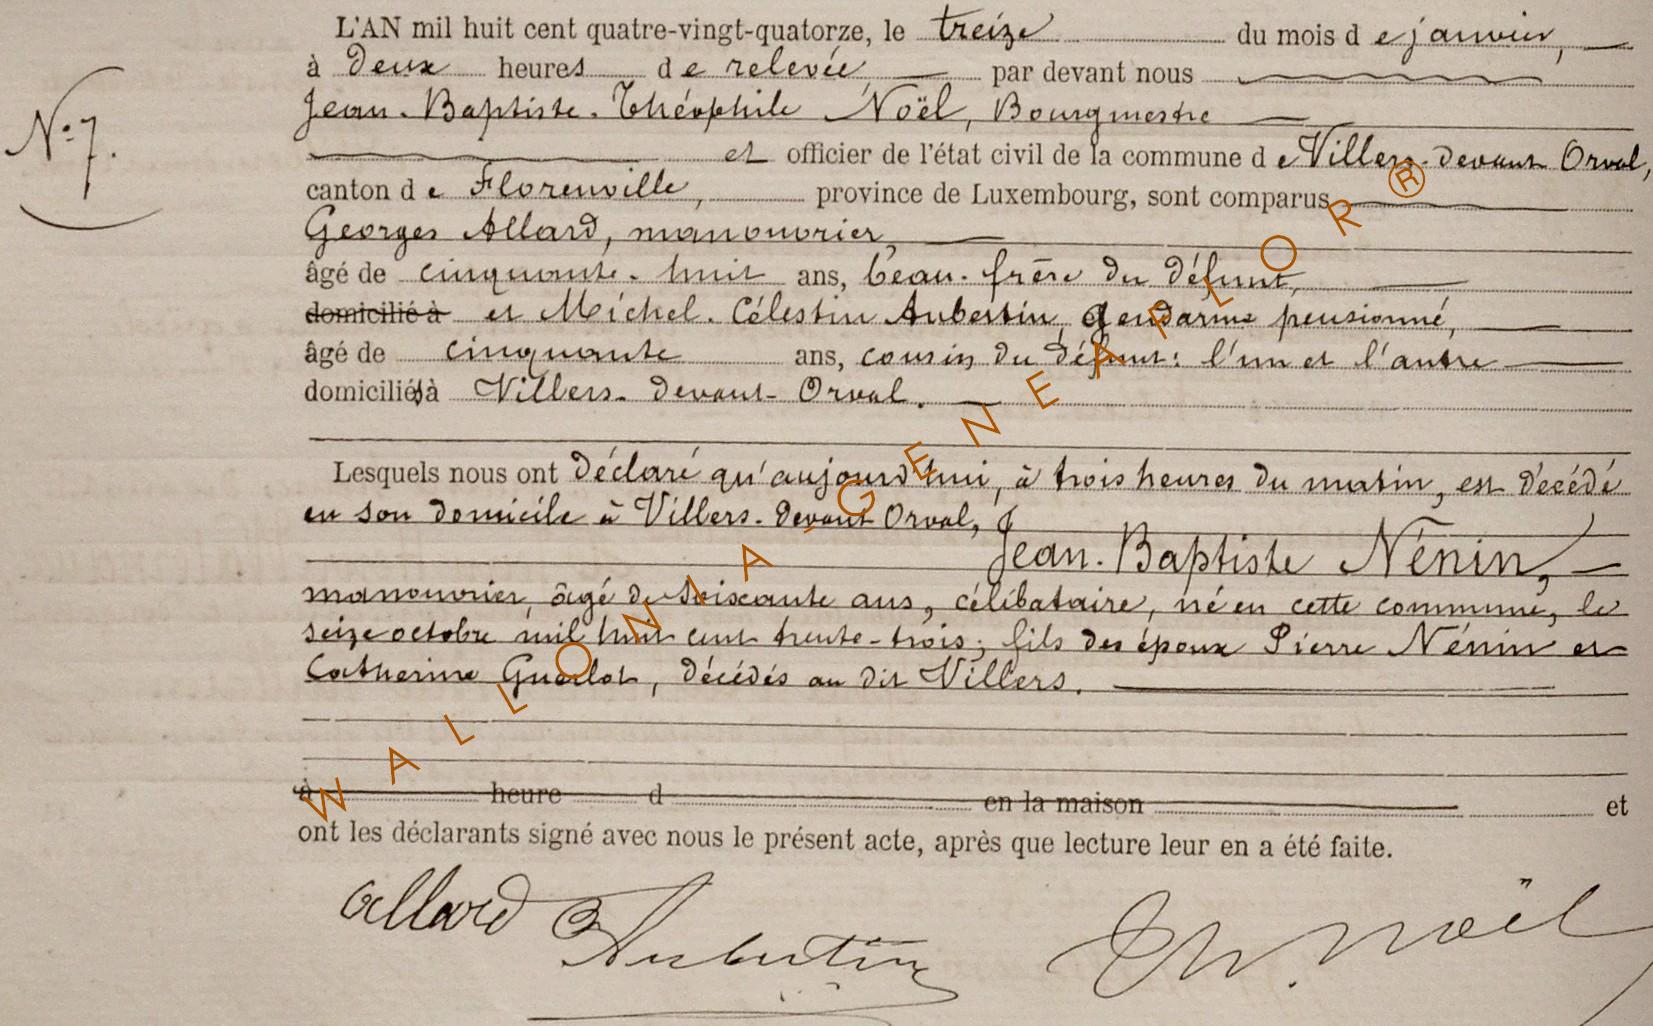 L'AN mil huit cent quatre-vingt-quatorze, le treize du mois de janvier,
à deux heures de relevée par devant nous
Jean-Baptiste-Théophile Noël, Bourgmestre
N° 7.
et officier de l'état civil de la commune de Villers-devant Orval,
canton de Florenville, province de Luxembourg, sont comparus
Georges Allard, manouvrier,
âgé de cinquante-huit ans, beau-frère du défunt,
domicilié à et Michel-Célestin Aubertin, gendarme pensionné,
âgé de cinquante ans, cousin du défunt: l'un et l'autre
domiciliés à Villers-devant-Orval.
Lesquels nous ont déclaré qu'aujourd'hui, à trois heures du matin, est décédé
en son domicile à Villers-devant Orval,
Jean-Baptiste Nénin,
manouvrier, âgé de soixante ans, célibataire, né en cette commune, le
seize octobre mil huit cent trente-trois; fils des époux Pierre Nénin et
Catherine, décédés au dit Villers.
à heure d en la maison et
ont les déclarants signé avec nous le présent acte, après que lecture leur en a été faite.
Allard Aubertin Th. Noël
WALLONIA-GENEAFLOR®